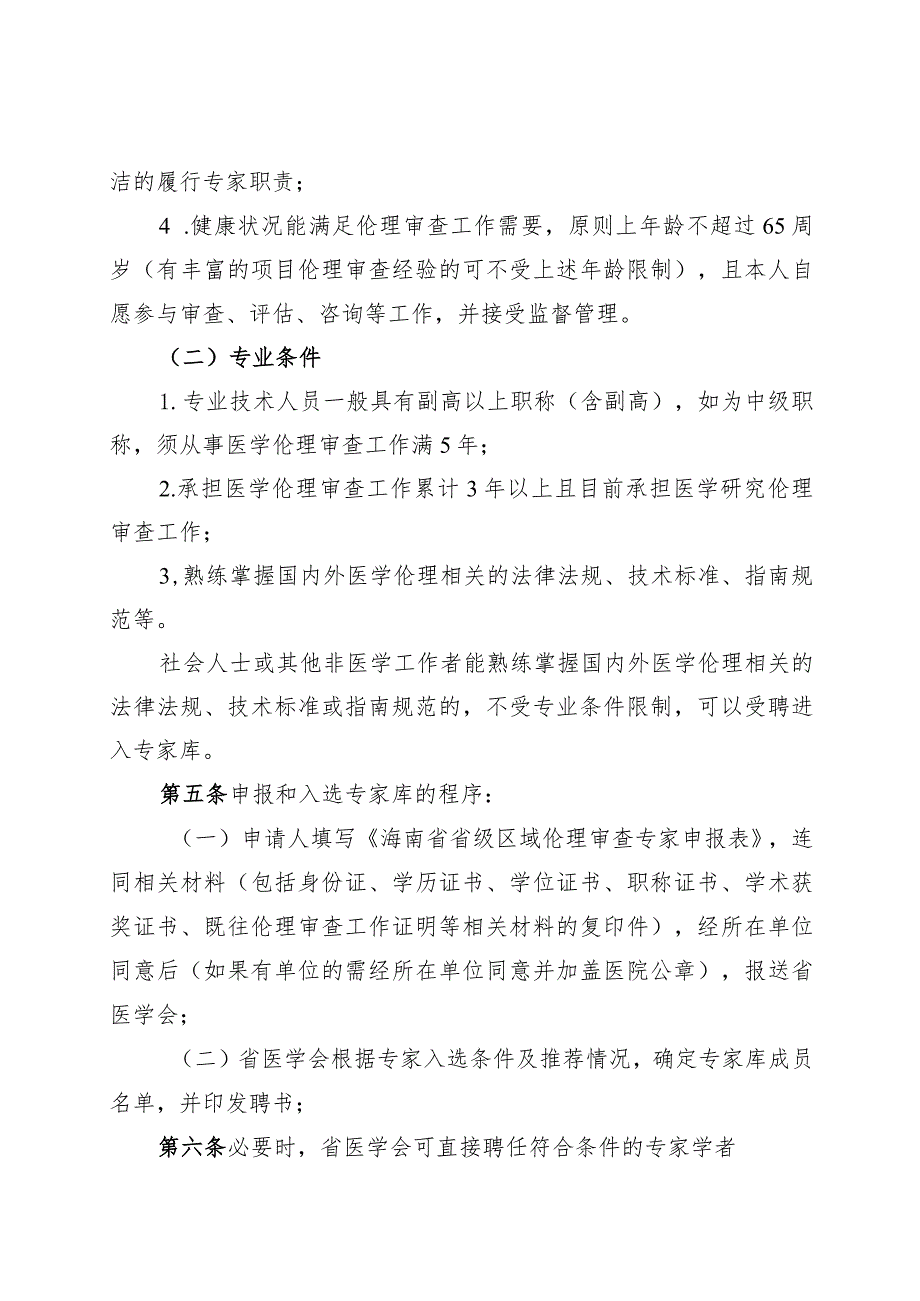 洁的履行专家职责；
4 .健康状况能满足伦理审查工作需要，原则上年龄不超过 65 周
岁（有丰富的项目伦理审查经验的可不受上述年龄限制），且本人自
愿参与审查、评估、咨询等工作，并接受监督管理。
（二）专业条件
1. 专业技术人员一般具有副高以上职称（含副高），如为中级职
称，须从事医学伦理审查工作满 5 年；
2.承担医学伦理审查工作累计 3 年以上且目前承担医学研究伦理
审查工作；
3,熟练掌握国内外医学伦理相关的法律法规、技术标准、指南规
范等。
社会人士或其他非医学工作者能熟练掌握国内外医学伦理相关的
法律法规、技术标准或指南规范的，不受专业条件限制，可以受聘进
入专家库。
第五条申报和入选专家库的程序：
（一）申请人填写《海南省省级区域伦理审查专家申报表》，连
同相关材料（包括身份证、学历证书、学位证书、职称证书、学术获
奖证书、既往伦理审查工作证明等相关材料的复印件），经所在单位
同意后（如果有单位的需经所在单位同意并加盖医院公章），报送省
医学会；
（二）省医学会根据专家入选条件及推荐情况，确定专家库成员
名单，并印发聘书；
第六条必要时，省医学会可直接聘任符合条件的专家学者